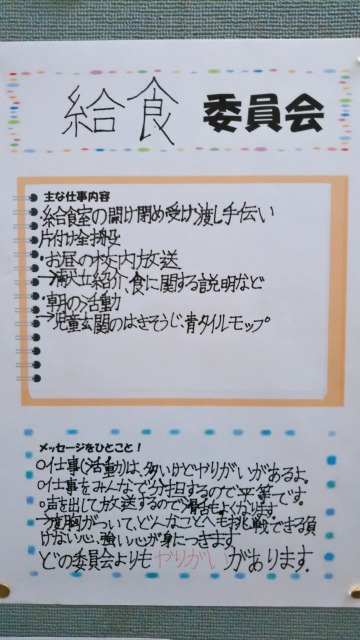 給食 委員会
主な仕事内容
・給食室の開け閉め受け渡し手伝い
片付け全般
・お昼の校内放送
→献立紹介、食に関する説明など
・朝の活動
→児童玄関のはきそうじ、青タイルモップ
メッセージをひとこと！
○仕事(活動)は、多いけどやりがいがあるよ。
○仕事をみんなで分担するので平等です。
○声を出して放送するので滑舌もよくなります
→度胸がついて、どんなことへも挑戦できる負
けない心、強い心が身につきます
どの委員会よりもやりがいがあります.